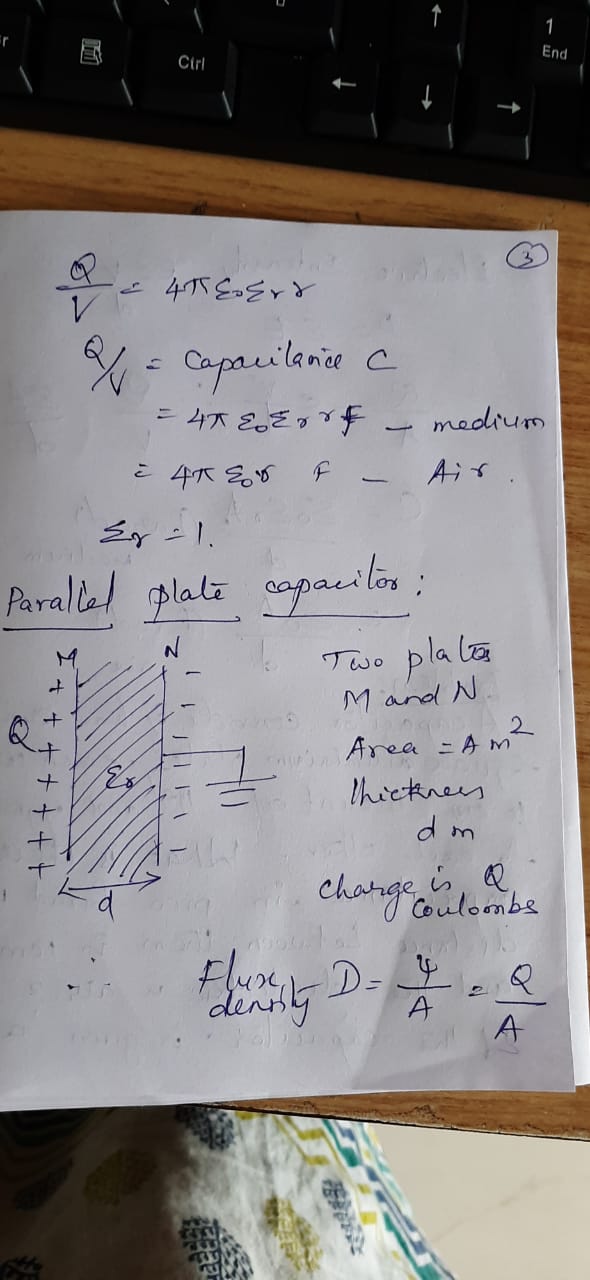 1
End
Ctrl
↑
← ↓ →
3
Q/V = 4π ε₀ εr r
Q/V = Capacitance C
= 4π ε₀ εr r F – medium
= 4π ε₀ r F – Air.
εr = 1.
Parallel plate capacitor :
M N
Two plates
M and N.
Area = A m²
Thickness
d m
Q
εr
d
+ + + + + + +
– – – – – – –
charge is Q
Coulombs
Flux
density D = ψ/A = Q/A